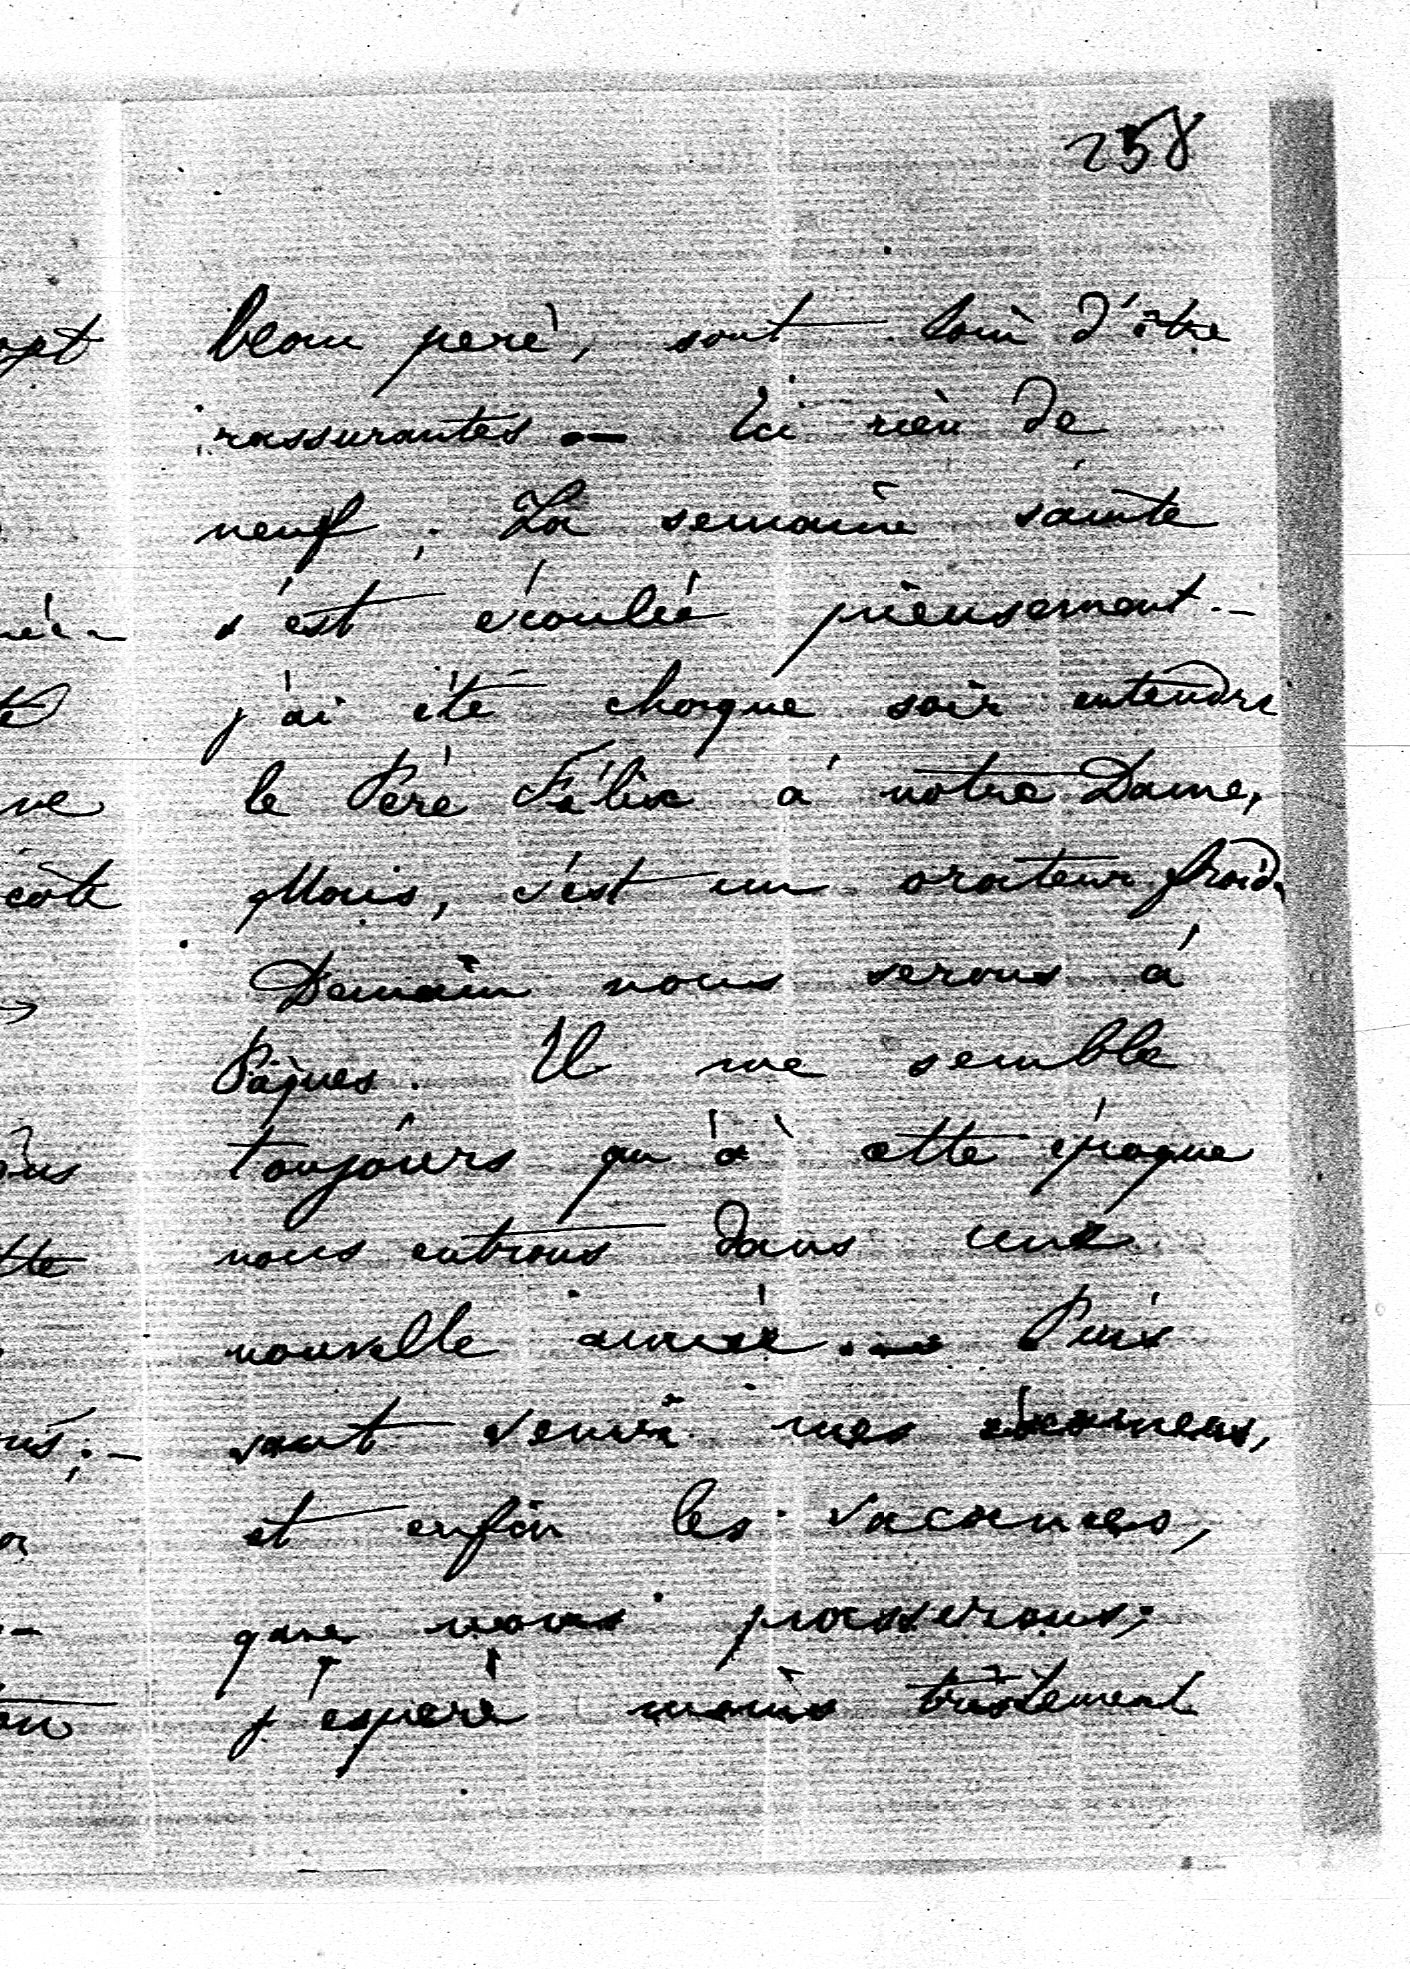 258
beau père, sont loin d'être
rassurantes — Ici rien de
neuf. La semaine sainte
s'est écoulée pieusement. —
j'ai été chaque soir entendre
le Père Félix à notre Dame,
Mais, c'est un orateur froid.
Demain nous serons à
Pâques. Il me semble
toujours qu'à cette époque
nous entrons dans une
nouvelle année. — Puis
vont venir mes examens,
et enfin les vacances,
que nous passerons,
j'espère moins tristement